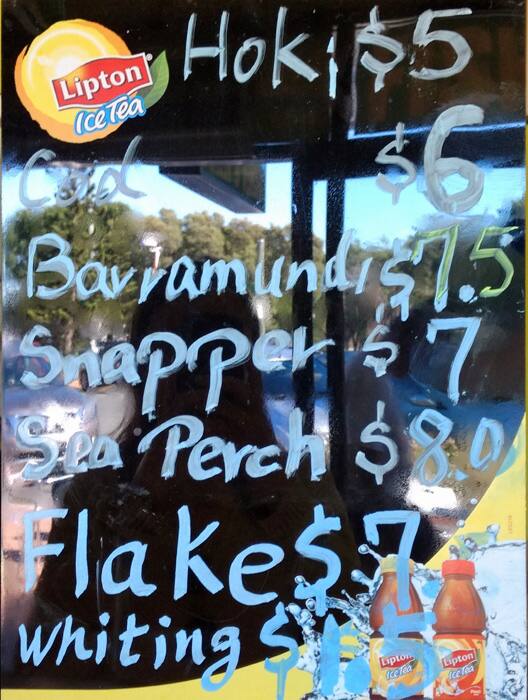 Lipton
Ice Tea
Hoki $5
Cod $6
Barramundi $7.5
Snapper $7
Sea Perch $8.0
Flake $7
Whiting
Lipton
Ice Tea
Lipton
Ice Tea